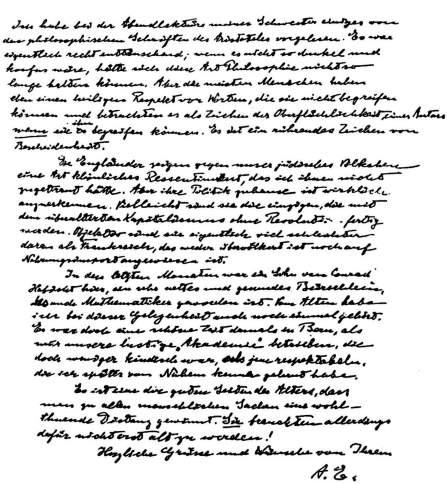 Ich habe bei der Abendlektüre meiner Schwester einiges von
den philosophischen Schriften des Aristoteles vorgelesen. Es war
eigentlich recht enttäuschend; wenn es nicht so dunkel und
konfus wäre, hätte sich diese Art Philosophie nicht so
lange halten können. Aber die meisten Menschen haben
eben einen heiligen Respekt vor Worten, die sie nicht begreifen
können und betrachten es als Zeichen der Oberflächlichkeit eines Autors
wenn sie ihn begreifen können. Es ist ein rührendes Zeichen von
Bescheidenheit.
Die Engländer zeigen gegen unser jüdisches Völkchen
eine Art kleinliches Ressentiment, das ich ihnen nicht
zugetraut hätte. Aber ihre Politik zuhause ist wirklich
anzuerkennen. Vielleicht sind sie die einzigen, die mit
dem überalterten Kapitalismus ohne Revolution fertig
werden. Objektiv sind sie eigentlich viel schlechter
daran als Frankreich, das weder übervölkert ist noch auf
Nahrungsimport angewiesen ist.
In den letzten Monaten war ein Sohn von Conrad
Habicht hier, ein sehr nettes und gesundes Bürschlein,
der Mathematiker geworden ist. Den Alten habe
ich bei dieser Gelegenheit auch noch einmal
Es war doch eine schöne Zeit damals in Bern, als
wir unsere lustige "Akademie" betrieben, die
doch weniger kindisch war, als jene respektabeln,
die ich später von Nahem kennen gelernt habe.
Es ist eine der guten Seiten des Alters, dass
man zu allen menschlichen Sachen eine wohl-
thuende Distanz gewinnt. Sie brauchten allerdings
dafür nicht erst alt zu werden!
Herzliche Grüsse und Wünsche von Ihrem
A. E.